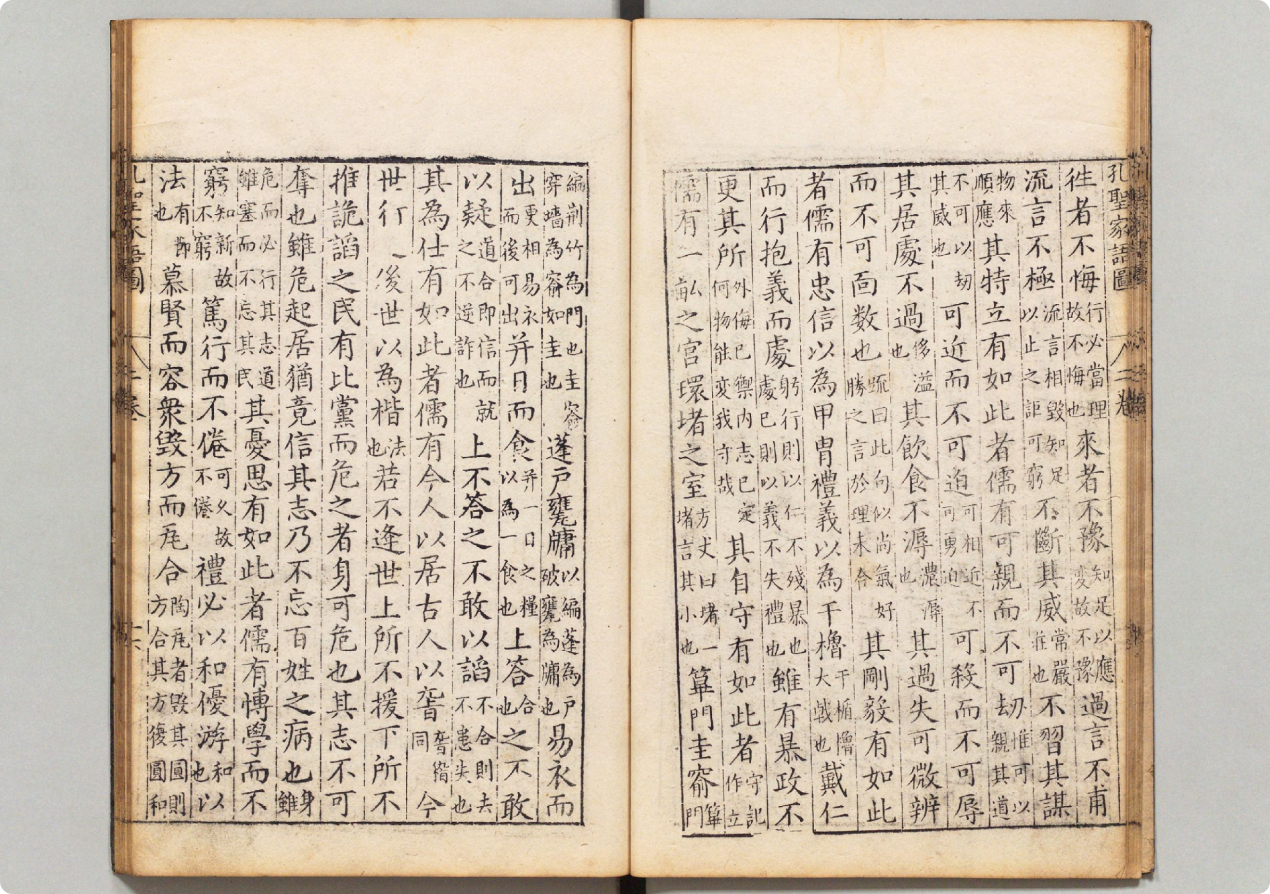 孔聖家語圖 二卷
徃者不悔行必當理故不悔也來者不豫知足以應變故不豫過言不再
流言不極流言相毀知足以止之詎可窮不斷其威常嚴莊也不習其謀
物來順應其特立有如此者儒有可親而不可刼惟可以親其道
不可以刼其威也可近而不可迫可相近不可勇迫可殺而不可辱
其居處不過侈溢也其飲食不溽濃溽也其過失可微辨
而不可面数也疏曰此句似尚氣好勝之言於理未合其剛毅有如此
者儒有忠信以為甲胄禮義以為干櫓干楯櫓大戟也戴仁
而行抱義而處躬行則以仁不殘暴也處已則以義不失禮也雖有暴政不
更其所外侮已禦内志已定何物能變我守哉其自守有如此者守記作立
儒有一畆之宫環堵之室方丈曰堵一堵言其小也篳門圭窬篳門
編荆竹為門也圭窬穿墻為窬如圭也蓬戸甕牖以編蓬為戸破甕為牖也易衣而
出更相易衣而後可出并日而食并一日之糧以為一食也上答合也之不敢
以疑道合即信而就之不逆詐也上不答之不敢以謟不合則去不患失也
其為仕有如此者儒有今人以居古人以同今
世行後世以為楷法也若不逢世上所不援下所不
推詭謟之民有比黨而危之者身可危也其志不可
奪也雖危起居猶竟信其志乃不忘百姓之病也身雖
危而必行其志道雖塞而不忘其民其憂思有如此者儒有博學而不
窮知新故不窮篤行而不倦可乆故不倦禮必以和優游和也以
法有節也慕賢而容衆毁方而瓦合陶瓦者毁其圓則方合其方復圓和